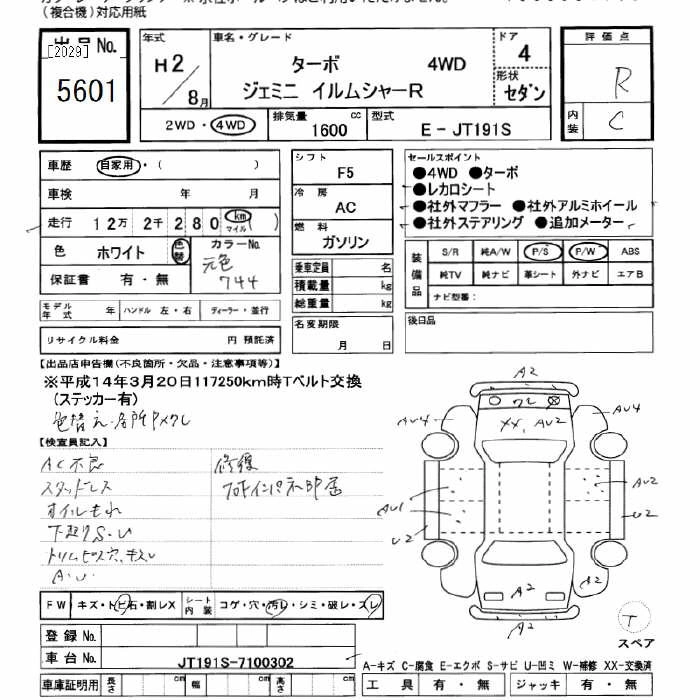 (複合機)対応用紙
出品No.
[2029]
5601
年式
H2/8月
車名・グレード
ターボ 4WD
ジェミニ イルムシャーR
ドア
4
形状
セダン
2WD・4WD
排気量 1600 cc
型式 E-JT191S
評価点
R
内装
C
車歴 自家用・( )
車検 年 月
走行 12万 2千 280 km マイル( )
色 ホワイト 色替 カラーNo.
元色
744
保証書 有・無
シフト
F5
冷房
AC
燃料
ガソリン
乗車定員 名
積載量 kg
総重量 kg
名変期限
月 日
セールスポイント
●4WD ●ターボ
●レカロシート
●社外マフラー ●社外アルミホイール
●社外ステアリング ●追加メーター
装備品
S/R 純A/W P/S P/W ABS
純TV 純ナビ 革シート 外ナビ エアB
ナビ型番:
後日品
モデル年式 年 ハンドル 左・右 ディーラー・並行
リサイクル料金 円 預託済
【出品店申告欄(不良箇所・欠品・注意事項等)】
※平成14年3月20日117250km時Tベルト交換
(ステッカー有)
【検査員記入】
AC不良
スタッドレス
オイルもれ
下廻りS.U
A.U
修復
FW キズ・トビ石・割レX
シート内装 コゲ・穴・汚レ・シミ・破レ・スレ
登録No.
車台No. JT191S-7100302
車庫証明用 長さ cm 幅 cm 高さ cm
A2
XX, AU2
AU4
AU4
AU1
AU2
U2
U2
A2
A2
A2
T
スペア
A-キズ C-腐食 E-エクボ S-サビ U-凹ミ W-補修 XX-交換済
工具 有・無 ジャッキ 有・無